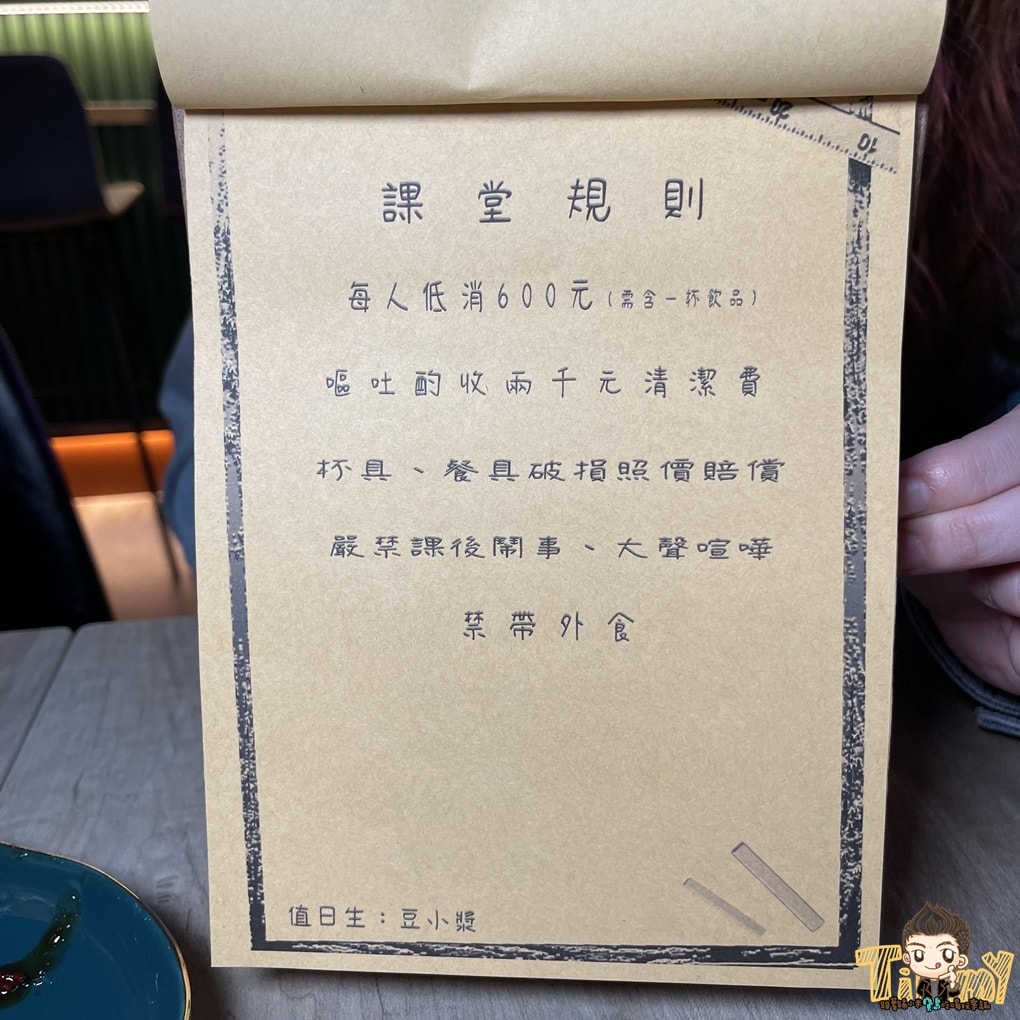 課堂規則
每人低消600元(需含一杯飲品)
嘔吐酌收兩千元清潔費
杯具、餐具破損照價賠償
嚴禁課後鬧事、大聲喧嘩
禁帶外食
值日生：豆小漿
10
20
Timmy